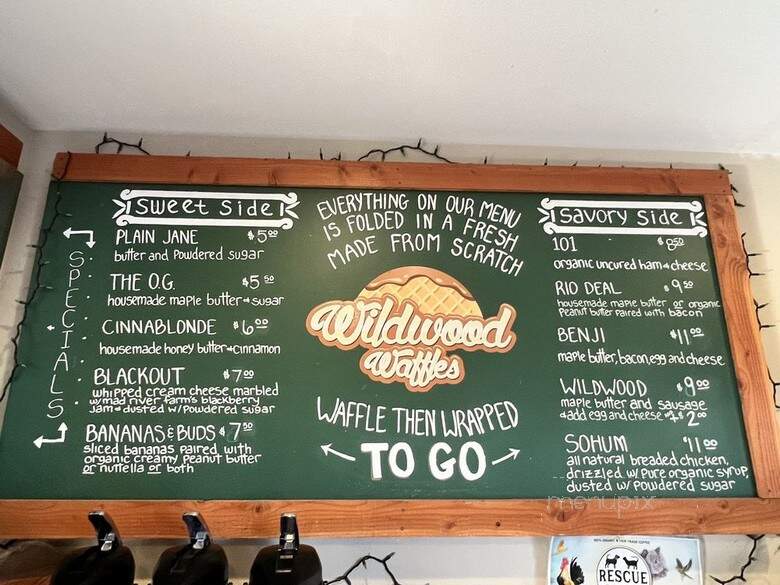 Sweet Side!
SPECIALS
PLAIN JANE $5.00
butter and powdered sugar
THE O.G. $5.50
housemade maple butter + sugar
CINNABLONDE $6.00
housemade honey butter + cinnamon
BLACKOUT $7.00
whipped cream cheese marbled
w/mad river farm's blackberry
Jam + dusted w/ powdered sugar
BANANAS & BUDS $7.50
sliced bananas paired with
organic creamy peanut butter
or nuttella or both
EVERYTHING ON OUR MENU
IS FOLDED IN A FRESH
MADE FROM SCRATCH
Wildwood
Waffles
WAFFLE THEN WRAPPED
TO GO
Savory Side
101 $8.50
organic uncured ham + cheese
RIO DEAL $9.50
housemade maple butter or organic
Peanut butter paired with bacon
BENJI $11.00
maple butter, bacon, egg and cheese
WILDWOOD $9.00
maple butter and sausage
+ add egg and cheese + $2.00
SOHUM $11.00
all natural breaded chicken,
drizzled w/ pure organic syrup,
dusted w/ powdered sugar
menupix
RESCUE